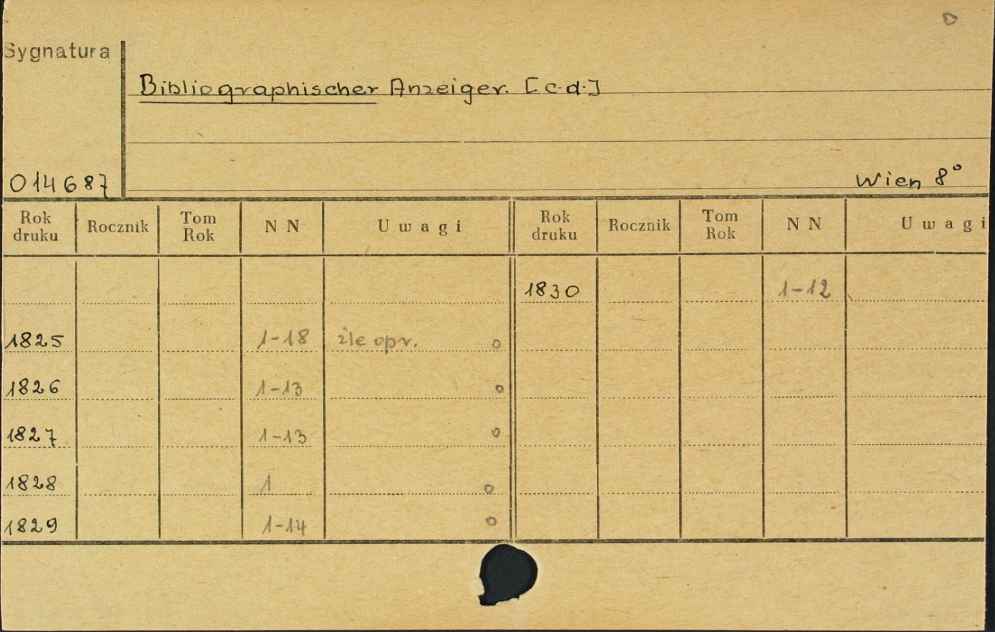 Sygnatura
Bibliographischer Anzeiger. [c.d.]
014687
Wien 8°
Rok druku Rocznik Tom Rok NN Uwagi Rok druku Rocznik Tom Rok NN Uwagi
1830 1-12
1825 1-18 źle opr. o
1826 1-13 o
1827 1-13 o
1828 1 o
1829 1-14 o